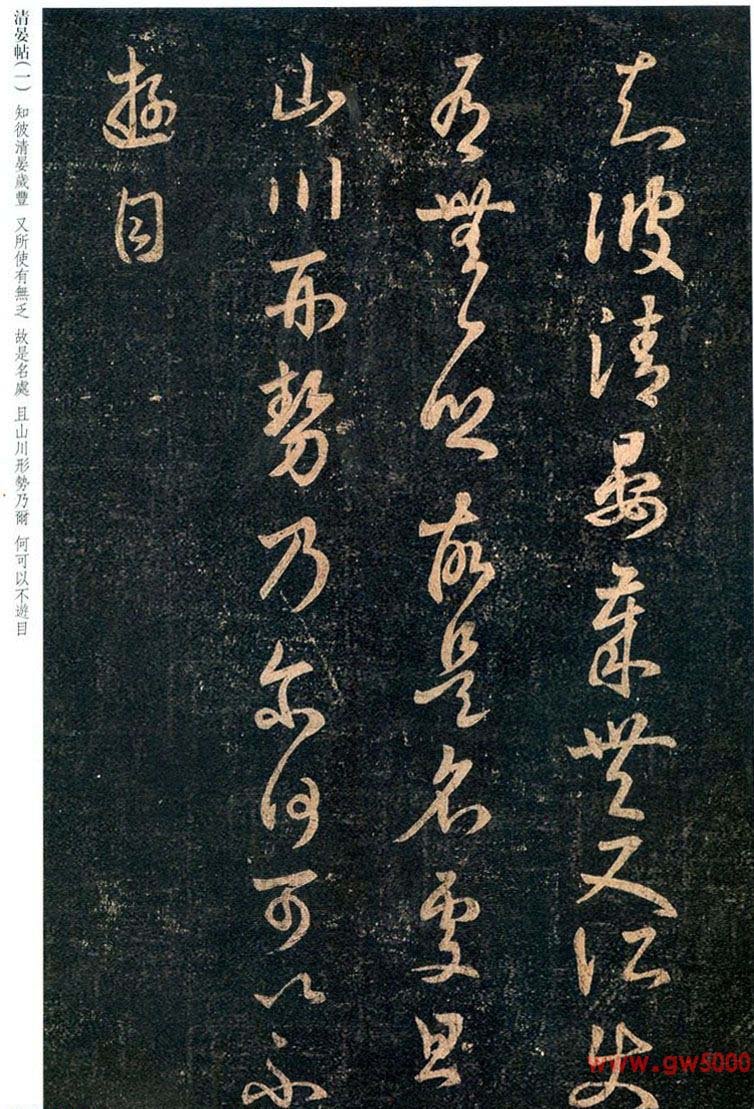 知彼清晏歲豐又所使
有無乏故是名處且
山川形勢乃爾何可以不
遊目
清晏帖(一) 知彼清晏歲豐 又所使有無乏 故是名處 且山川形勢乃爾 何可以不遊目
www.gw5000